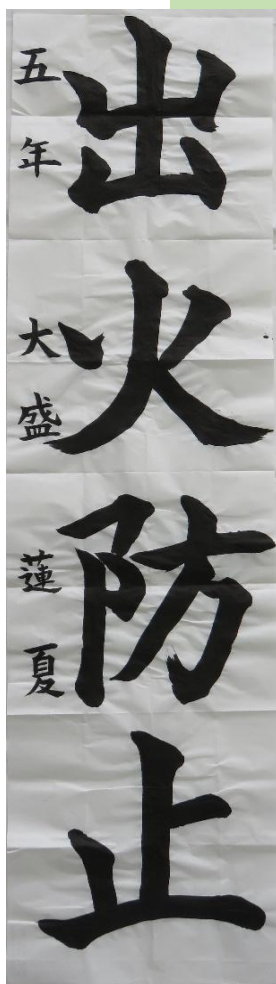 出火防止
五年 大盛 蓮夏